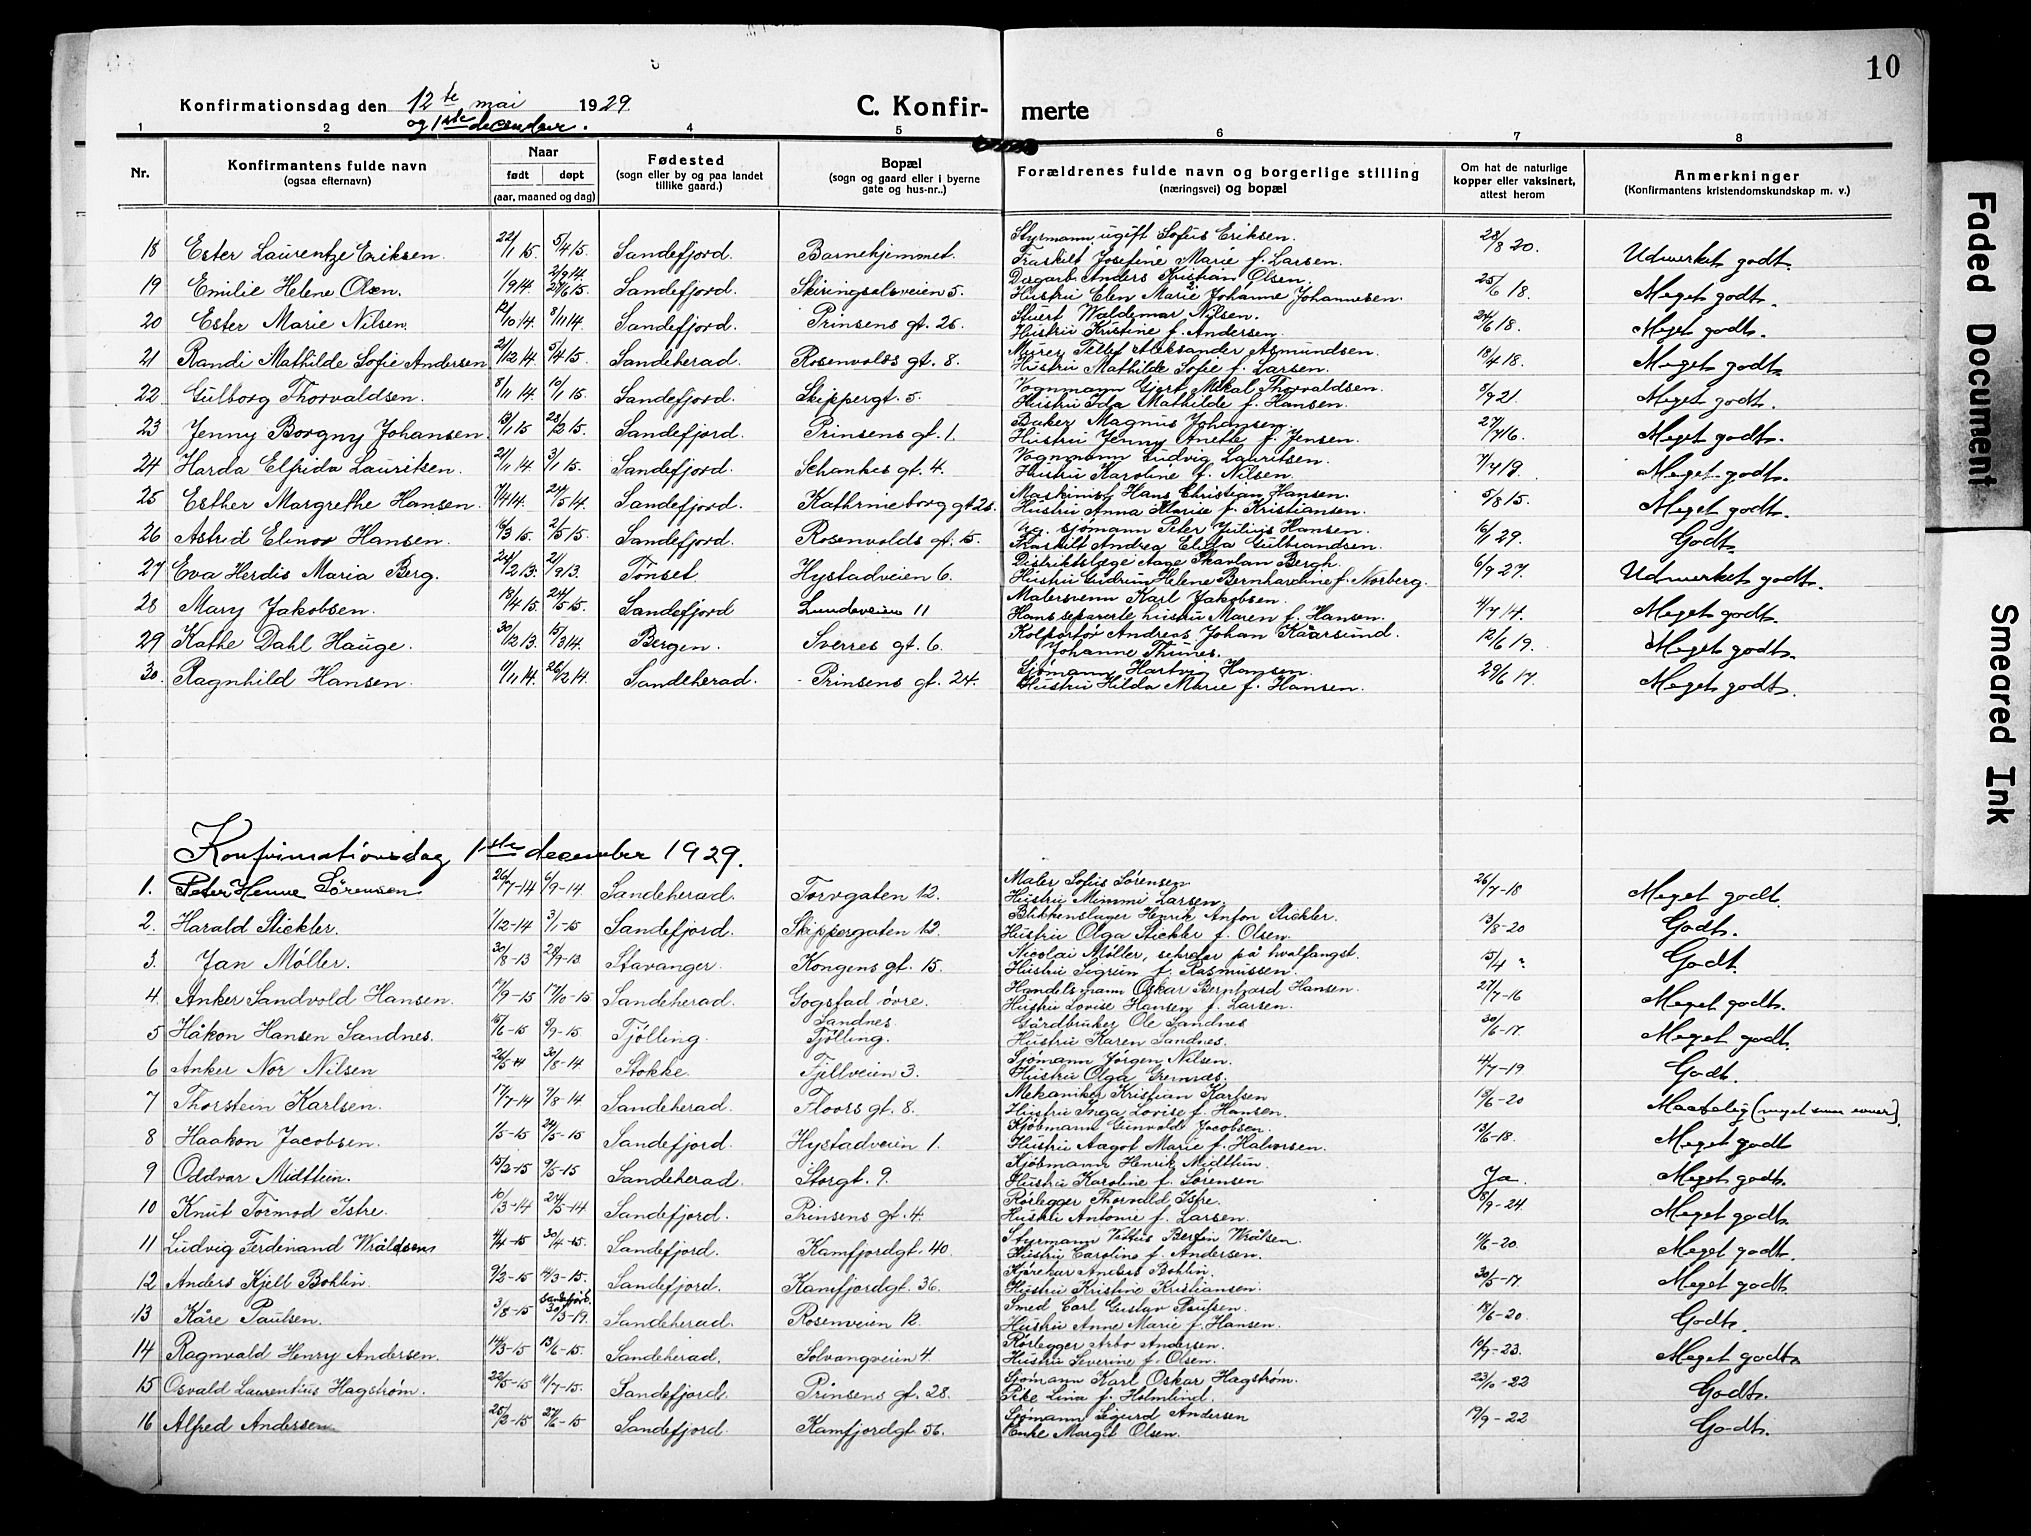 10
Konfirmationsdag den 12te mai 1929
og 1ste december.
C. Konfir-merte
1 2 4 5 6 7 8
Nr. Konfirmantens fulde navn (ogsaa efternavn) Naar født døpt (aar, maaned og dag) Fødested (sogn eller by og paa landet tillike gaard.) Bopæl (sogn og gaard eller i byerne gate og hus-nr..) Forældrenes fulde navn og borgerlige stilling (næringsvei) og bopæl Om hat de naturlige kopper eller vaksinert, attest herom Anmerkninger (Konfirmantens kristendomskundskap m. v.)
Styrmann, ugift Sofus Eriksen.
18 Ester Laurentze Eriksen. 22/1 15. 5/4 15. Sandefjord. Barnehjemmet. Fraskilt Josefine Marie f. Larsen. 28/8 20. Udmerket godt.
Dagarb. Anders Kristian Olsen.
19 Emilie Helene Olsen. 1/9 14. 27/6 15. Sandefjord. Skiringsalsveien 5. Hustru Elen Marie Johanne Johannesen. 25/6 18. Meget godt.
Stuert Waldemar Nilsen.
20 Ester Marie Nilsen. 12/10 14. 8/11 14. Sandefjord. Prinsens gt. 26. Hustru Kristine f. Andersen. 24/6 18. Meget godt.
Murer Tellef Aleksander Asmundsen.
21 Randi Mathilde Sofie Andersen 21/12 14. 5/4 15. Sandeherad. Rosenvolds gt. 8. Hustru Mathilde Sofie f. Larsen. 18/4 18. Meget godt.
Vognmann Gjert Mikal Thorvaldsen.
22 Gulborg Thorvaldsen. 8/11 14. 10/1 15. Sandefjord. Skippergt. 5. Hustru Ida Mathilde f. Hansen. 5/9 21. Meget godt.
Baker Magnus Johansen.
23 Jenny Borgny Johansen. 13/1 15 28/2 15. Sandefjord. Prinsens gt. 1. Hustru Jenny Anette f. Jensen. 27/7 16. Meget godt.
Vognmann Ludvig Lauritsen.
24 Harda Elfrida Lauritsen. 21/11 14. 3/1 15. Sandefjord. Schankes gt. 4. Hustru Karoline f. Nilsen. 7/7 19. Meget godt.
Maskinist Hans Christian Hansen.
25 Esther Margrethe Hansen. 7/4 14. 24/5 14. Sandefjord. Kathrineborg gt 26. Hustru Anna Marise f. Kristiansen. 5/8 15. Meget godt.
Ug. sjømann Peter Julius Hansen.
26 Astrid Elinor Hansen. 6/3 15. 2/5 15. Sandefjord. Rosenvolds gt. 15. Fraskilt Andrea Elisa Gulbrandsen. 16/1 29. Godt.
Distriktslæge Aage Skavlan Bergh.
27 Eva Herdis Maria Berg. 24/2 13. 21/9 13. Tønset. Hystadveien 6. Hustru Gudrun Helene Bernhardine f. Norberg. 6/9 27. Udmerket godt.
Malersvenn Karl Jakobsen.
28 Mary Jakobsen. 18/4 15. 24/5 15. Sandefjord Lundeveien 11 Hans separerte hustru Maren f. Hansen. 4/7 14. Meget godt.
Kolportør Andreas Johan Kaarsund.
29 Kathe Dahl Hauge. 30/12 13. 15/3 14. Bergen. Sverres gt. 6. Johanne Thunes. 12/6 19. Meget godt.
Sjømann Hartvig Hansen.
30. Ragnhild Hansen. 1/11 14. 26/12 14. Sandeherad. - Prinsens gt. 24. Hustru Hilda Marie f. Hansen. 29/6 17. Meget godt.
Konfirmationsdag 1ste december 1929.
Maler Sofus Sørensen
1. Peter Sørensen. 26/7-14 6/9-14. Sandeherad. Torvgaten 12. Hustru Mimmi Larsen. 26/7-18 Meget godt.
Blikkenslager Henrik Anton Stickler.
2. Harald Stickler. 1/12-14 3/1-15 Sandefjord. Skippergaten 12. Hustru Olga Stickler f. Olsen. 13/8-20 Godt.
Nicolai Møller, på hvalfangst.
3. Jan Møller. 30/8-13 28/9-13. Stavanger. Kongens gt. 15. Hustru Sigrun f. Rasmussen. 15/4 " Godt.
Handelsmann Oskar Bernhard Hansen.
4. Anker Sandvold Hansen. 17/9-15 17/10-15 Sandeherad. Gogstad øvre. Hustru Lovise Hansen f. Larsen. 27/7-16 Meget godt.
Gårdbruker Ole Sandnes
5 Håkon Hansen Sandnes. 15/6-15 5/9-15 Tjølling. Sandnes. Tjølling. Hustru Karen Sandnes. 30/6-17. Meget godt.
Sjømann Jørgen Nilsen.
6 Anker Nor Nilsen 26/5-14 30/8-14 Stokke. Fjellveien 3. Hustru Olga 4/7-19 Godt.
Mekaniker Kristian Karlsen
7 Thorstein Karlsen. 17/7-14 9/8-14. Sandeherad. Floors gt. 8. Hustru Inga Lovise f. Hansen. 13/6-20 Maatelig (meget smaa evner).
Kjøbmann Gunvald Jacobsen.
8 Haakon Jacobsen. 1/5-15 24/5-15 Sandefjord. Hystadveien 1. Hustru Aagot Marie f. Halvorsen. 13/6-18. Meget godt
Kjøbmann Henrik Midttun.
9 Oddvar Midttun. 15/2-15 9/5-15 Sandeherad. Storgt. 9. Hustru Karoline f. Sørensen Ja. Meget godt.
Rørlegger Thorvald Istre.
10 Knut Tormod Istre. 10/3-14 24/5-14 Sandefjord. Prinsens gt. 4. Hustru Antonie f. Larsen. 8/9-24. Meget godt.
Styrmann Wråldsen.
11 Ludvig Ferdinand Wråldsen 4/4-15 30/4-15 Sandefjord. Kamfjordgt. 40. Hustru Caroline f. Andersen. 11/6-20. Meget godt.
Kjørekar Anders Bohlin.
12 Anders Kjell Bohlin. 9/2-15 4/3-15. Sandefjord. Kamfjordgt. 36. Hustru Kristine Kristiansen. 30/5-17. Meget godt.
Smed Carl Gustav Paulsen.
13 Kåre Paulsen. 3/8-15 Sandefjord. 30/3-19. Sandeherad. Rosenveien 12. Hustru Anne Marie f. Hansen. 18/6-20. Godt.
Rørlegger Arbo Andersen.
14 Ragnvald Henry Andersen. 14/3-15 13/6-15. Sandeherad. Solvangveien 4. Hustru Severine f. Olsen. 10/9-23. Meget godt.
Sjømann Karl Oskar Hagstrøm.
15 Osvald Laurentius Hagstrøm. 22/5-15 11/7-15. Sandefjord. Prinsens gt. 28. Pike Lina f. Holmlind. 23/10-22 Godt.
Sjømann Sigurd Andersen
16 Alfred Andersen 25/3-15 27/6-15 Sandefjord. Kamfjordgt. 56. Enke Margit Olsen. 19/9-22 Godt.
Faded Document
Smeared Ink